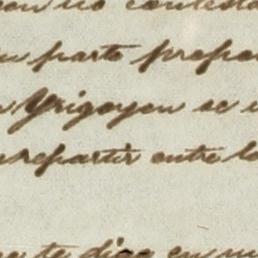 no contesta
parte
Yrigoyen se
repartir entre lo
te dice en